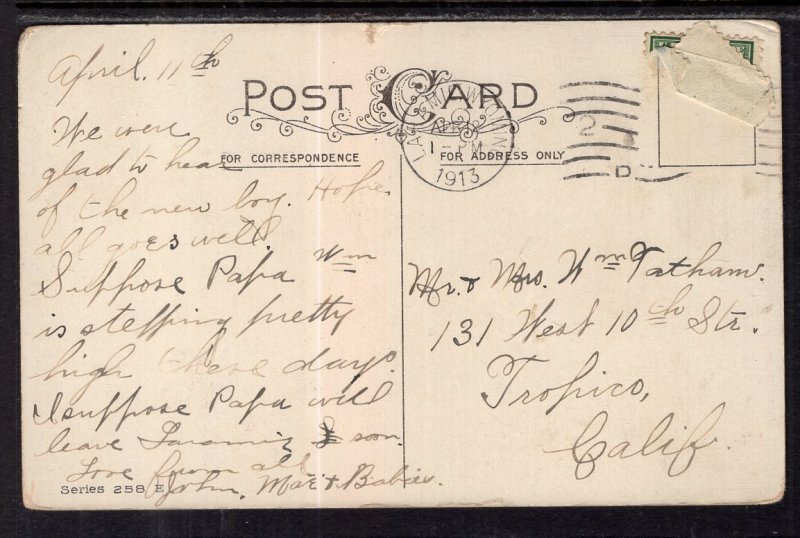 April. 11th
POST CARD
LARAMIE, WYO.
APR 12
1 - PM
1913
FOR CORRESPONDENCE
FOR ADDRESS ONLY
We were
glad to hear
of the new boy. Hope
all goes well.
Suppose Papa Wm
is stepping pretty
high these days.
I suppose Papa will
leave Laramie soon.
Love from all
John, Mae & Babies.
Series 258 E
Mr. & Mrs. Wm Tatham.
131 West 10th Str.
Tropico,
Calif.